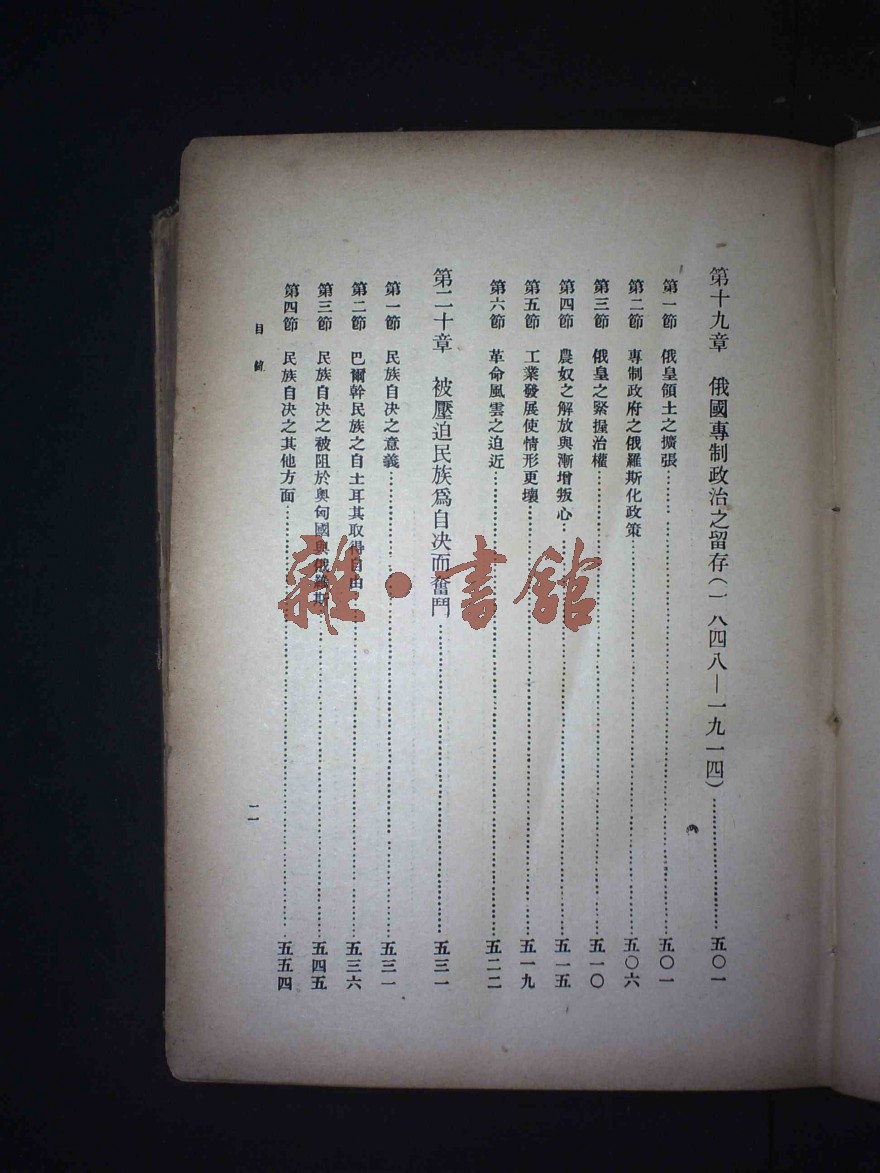 第十九章　俄國專制政治之留存（一八四八—一九一四）……五〇一
第一節　俄皇領土之擴張……五〇一
第二節　專制政府之俄羅斯化政策……五〇六
第三節　俄皇之緊握治權……五一〇
第四節　農奴之解放與漸增叛心……五一五
第五節　工業發展使情形更壞……五一九
第六節　革命風雲之迫近……五二二
第二十章　被壓迫民族爲自決而奮鬥……五三一
第一節　民族自決之意義……五三一
第二節　巴爾幹民族之自土耳其取得自由……五三六
第三節　民族自決之被阻於奧匈國與俄羅斯……五四五
第四節　民族自決之其他方面……五五四
目錄
一一
雜·書館